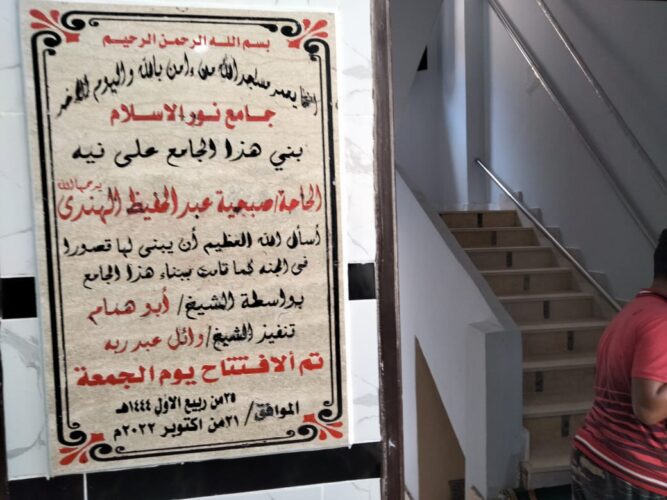 بسم الله الرحمن الرحيم
إنما يعمر مساجد الله من ءامن بالله واليوم الآخر
جامع نور الاسلام
بني هذا الجامع على نيه
الحاجة/صبحية عبد الحفيظ الهندى يرحمها الله
أسأل الله العظيم أن يبنى لها قصورا
فى الجنه كما قامت ببناء هذا الجامع
بواسطة الشيخ/أبو همام
تنفيذ الشيخ/وائل عبد ربه
تم ألافتتاح يوم الجمعة
٢٥ من ربيع الاول ١٤٤٤هـ
الموافق/٢١ من اكتوبر ٢٠٢٢م